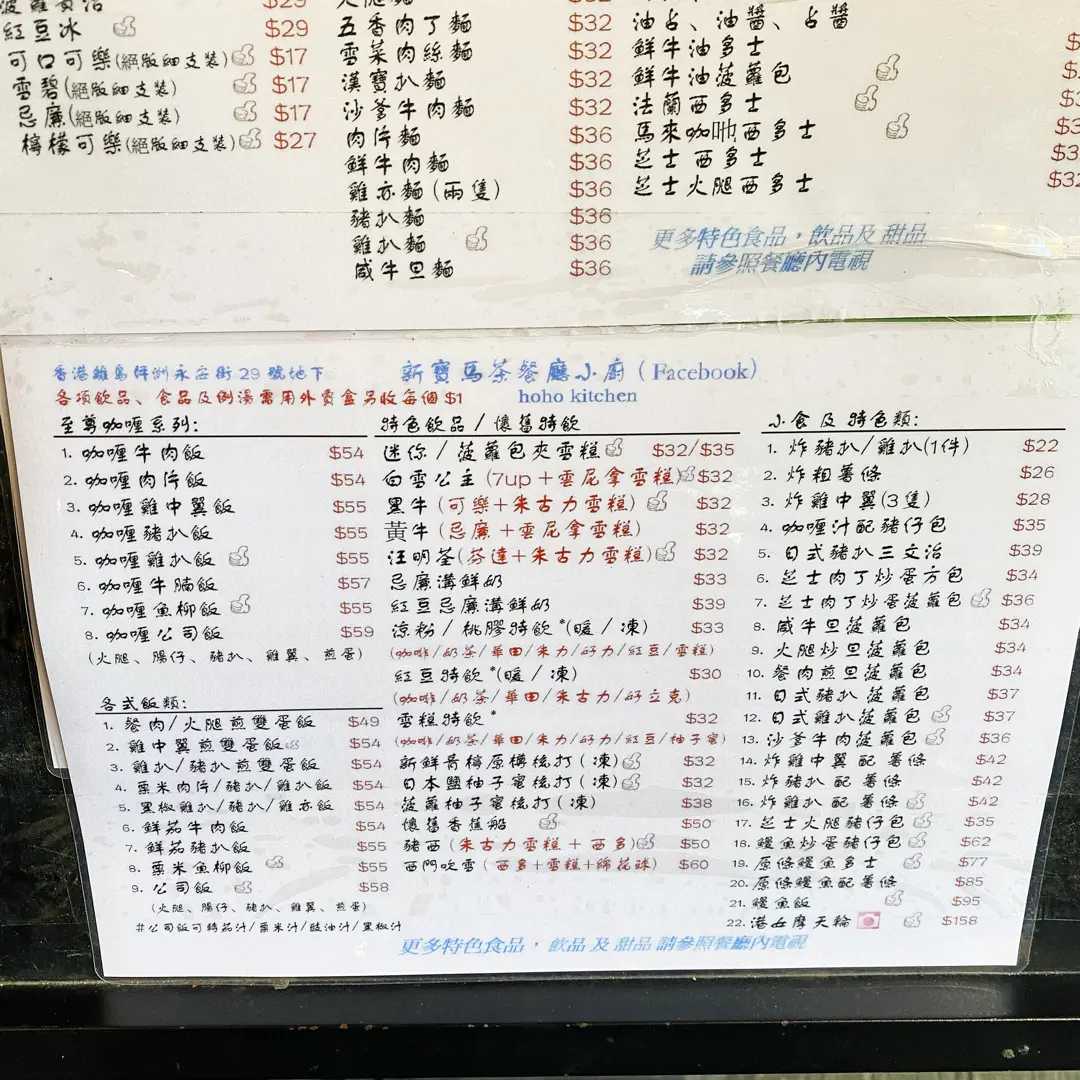 紅豆冰 $29
可口可樂(絕版細支裝) $17
雪碧(絕版細支裝) $17
忌廉(絕版細支裝) $17
檸檬可樂(絕版細支裝) $27
五香肉丁麵 $32
雪菜肉絲麵 $32
漢寶扒麵 $32
沙爹牛肉麵 $32
肉片麵 $36
鮮牛肉麵 $36
雞亦麵(兩隻) $36
豬扒麵 $36
雞扒麵 $36
咸牛旦麵 $36
油占、油醬、占醬
鮮牛油多士
鮮牛油菠蘿包
法蘭西多士
馬來咖吔西多士
芝士西多士
芝士火腿西多士
更多特色食品,飲品及 甜品
請參照餐廳內電視
香港離島坪洲永安街 29 號地下
新寶馬茶餐廳小廚(Facebook)
各項飲品、食品及例湯需用外賣盒另收每個 $1
hoho kitchen
至尊咖喱系列:
1. 咖喱牛肉飯 $54
2. 咖喱肉片飯 $54
3. 咖喱雞中翼飯 $55
4. 咖喱豬扒飯 $55
5. 咖喱雞扒飯 $55
6. 咖喱牛腩飯 $57
7. 咖喱魚柳飯 $55
8. 咖喱公司飯 $59
(火腿、腸仔、豬扒、雞翼、煎蛋)
各式飯類:
1. 餐肉/火腿煎雙蛋飯 $49
2. 雞中翼煎雙蛋飯 $54
3. 雞扒/豬扒煎雙蛋飯 $54
4. 粟米肉片/豬扒/雞扒飯 $54
5. 黑椒雞扒/豬扒/雞亦飯 $54
6. 鮮茄牛肉飯 $54
7. 鮮茄豬扒飯 $55
8. 粟米魚柳飯 $55
9. 公司飯 $58
(火腿、腸仔、豬扒、雞翼、煎蛋)
#公司飯可轉茄汁/粟米汁/豉油汁/黑椒汁
特色飲品/懷舊特飲
迷你/菠蘿包夾雪糕 $32/$35
白雪公主(7up+雲尼拿雪糕) $32
黑牛(可樂+朱古力雪糕) $32
黃牛(忌廉+雲尼拿雪糕) $32
汪明荃(芬達+朱古力雪糕) $32
忌廉溝鮮奶 $33
紅豆忌廉溝鮮奶 $39
涼粉/桃膠特飲*(暖/凍) $33
(咖啡/奶茶/華田/朱力/好力/紅豆/雪糕)
紅豆特飲*(暖/凍) $30
(咖啡/奶茶/華田/朱古力/好立克)
雪糕特飲* $32
(咖啡/奶茶/華田/朱力/好力/紅豆/柚子蜜)
新鮮青檸原構梳打(凍) $32
日本鹽柚子蜜梳打(凍) $32
菠蘿柚子蜜梳打(凍) $38
懷舊香蕉船 $50
豬西(朱古力雪糕+西多) $50
西門吹雪(西多+雪糕+綿花球) $60
小食及特色類:
1. 炸豬扒/雞扒(1件) $22
2. 炸粗薯條 $26
3. 炸雞中翼(3隻) $28
4. 咖喱汁配豬仔包 $35
5. 日式豬扒三文治 $39
6. 芝士肉丁炒蛋方包 $34
7. 芝士肉丁炒蛋菠蘿包 $36
8. 咸牛旦菠蘿包 $34
9. 火腿炒旦菠蘿包 $34
10. 餐肉煎旦菠蘿包 $34
11. 日式豬扒菠蘿包 $37
12. 日式雞扒菠蘿包 $37
13. 沙爹牛肉菠蘿包 $36
14. 炸雞中翼配薯條 $42
15. 炸豬扒配薯條 $42
16. 炸雞扒配薯條 $42
17. 芝士火腿豬仔包 $35
18. 鰻魚炒蛋豬仔包 $62
19. 原條鰻魚多士 $77
20. 原條鰻魚配薯條 $85
21. 鰻魚飯 $95
22. 港女摩天輪 $158
更多特色食品,飲品 及 甜品 請參照餐廳內電視